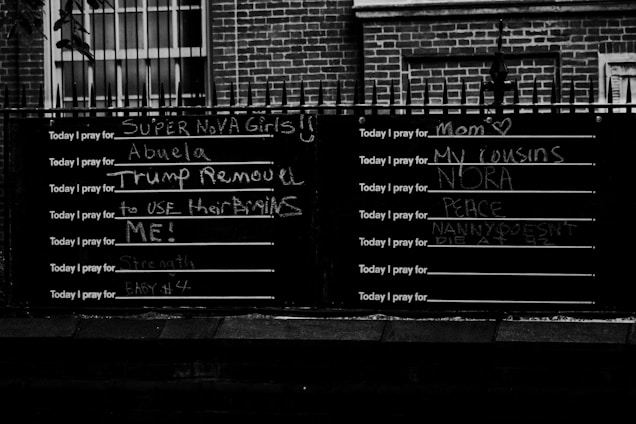 Today I pray for SUPER NOVA Girls!!
Today I pray for Abuela
Today I pray for Trump Removel
Today I pray for to USE their BRAINS
Today I pray for ME!
Today I pray for Strength
Today I pray for BABY #4
Today I pray for Mom
Today I pray for My cousins
Today I pray for NORA
Today I pray for PEACE
Today I pray for NANNY DOESN'T
DIE AT 82
Today I pray for
Today I pray for